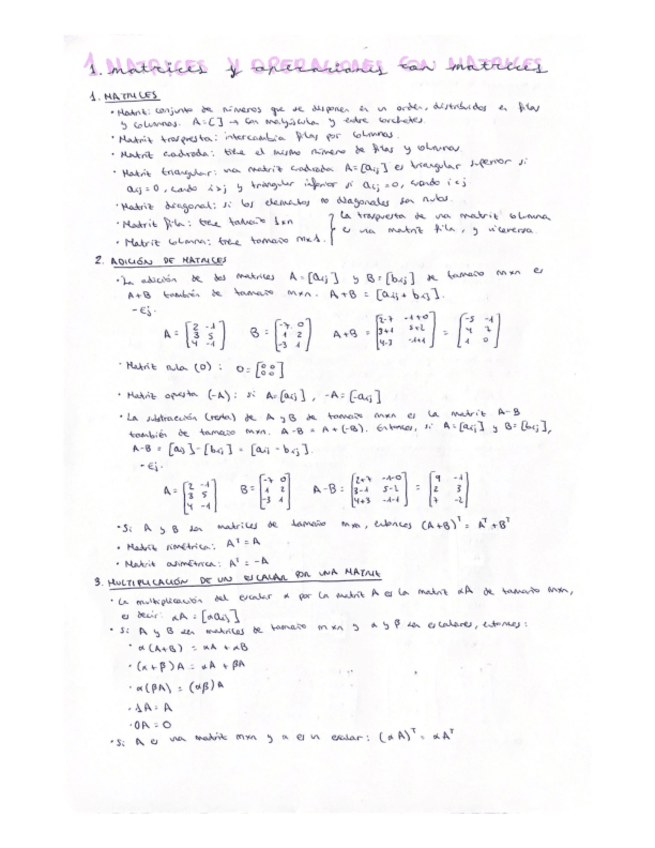 1. MATRICES Y OPERACIONES CON MATRICES
1. matrices y operaciones con matrices
1. MATRICES
· Matriz: conjunto de números que se disponen en un orden, distribuidos en filas
y columnas. A=[ ] → con mayúscula y entre corchetes.
· Matriz traspuesta: intercambia filas por columnas.
· Matriz cuadrada: tiene el mismo número de filas y columnas
· Matriz triangular: una matriz cuadrada A=[aij] es triangular superior si
aij=0, cuando i>j y triangular inferior si aij=0, cuando i<j
· Matriz diagonal: si los elementos no diagonales son nulos.
· Matriz fila: tiene tamaño 1xn } La traspuesta de una matriz columna
· Matriz columna: tiene tamaño mx1. } es una matriz fila, y viceversa.
2. ADICIÓN DE MATRICES
· La adición de dos matrices A=[aij] y B=[bij] de tamaño mxn es
A+B también de tamaño mxn. A+B = [aij+bij].
- Ej.
A = [2 -1; 3 5; 4 -1] B = [-7 0; 1 2; -3 1] A+B = [2-7 -1+0; 3+1 5+2; 4-3 -1+1] = [-5 -1; 4 7; 1 0]
· Matriz nula (0): 0=[0 0; 0 0]
· Matriz opuesta (-A): si A=[aij], -A=[-aij]
· La substracción (resta) de A y B de tamaño mxn es la matriz A-B
también de tamaño mxn. A-B = A+(-B). Entonces, si A=[aij] y B=[bij],
A-B = [aij]-[bij] = [aij-bij].
- Ej.
A= [2 -1; 3 5; 4 -1] B= [-7 0; 1 2; -3 1] A-B = [2+7 -1-0; 3-1 5-2; 4+3 -1-1] = [9 -1; 2 3; 7 -2]
· Si A y B son matrices de tamaño mxn, entonces (A+B)ᵀ = Aᵀ+Bᵀ
· Matriz simétrica: Aᵀ=A
· Matriz asimétrica: Aᵀ=-A
3. MULTIPLICACIÓN DE UN ESCALAR POR UNA MATRIZ
· La multiplicación del escalar α por la matriz A es la matriz αA de tamaño mxn,
es decir: αA=[αaij]
· Si A y B son matrices de tamaño mxn y α y β son escalares, entonces:
· α(A+B) = αA + αB
· (α+β)A = αA + βA
· α(βA) = (αβ)A
· 1A = A
· 0A = 0
· Si A es una matriz mxn y α es un escalar: (αA)ᵀ = αAᵀ